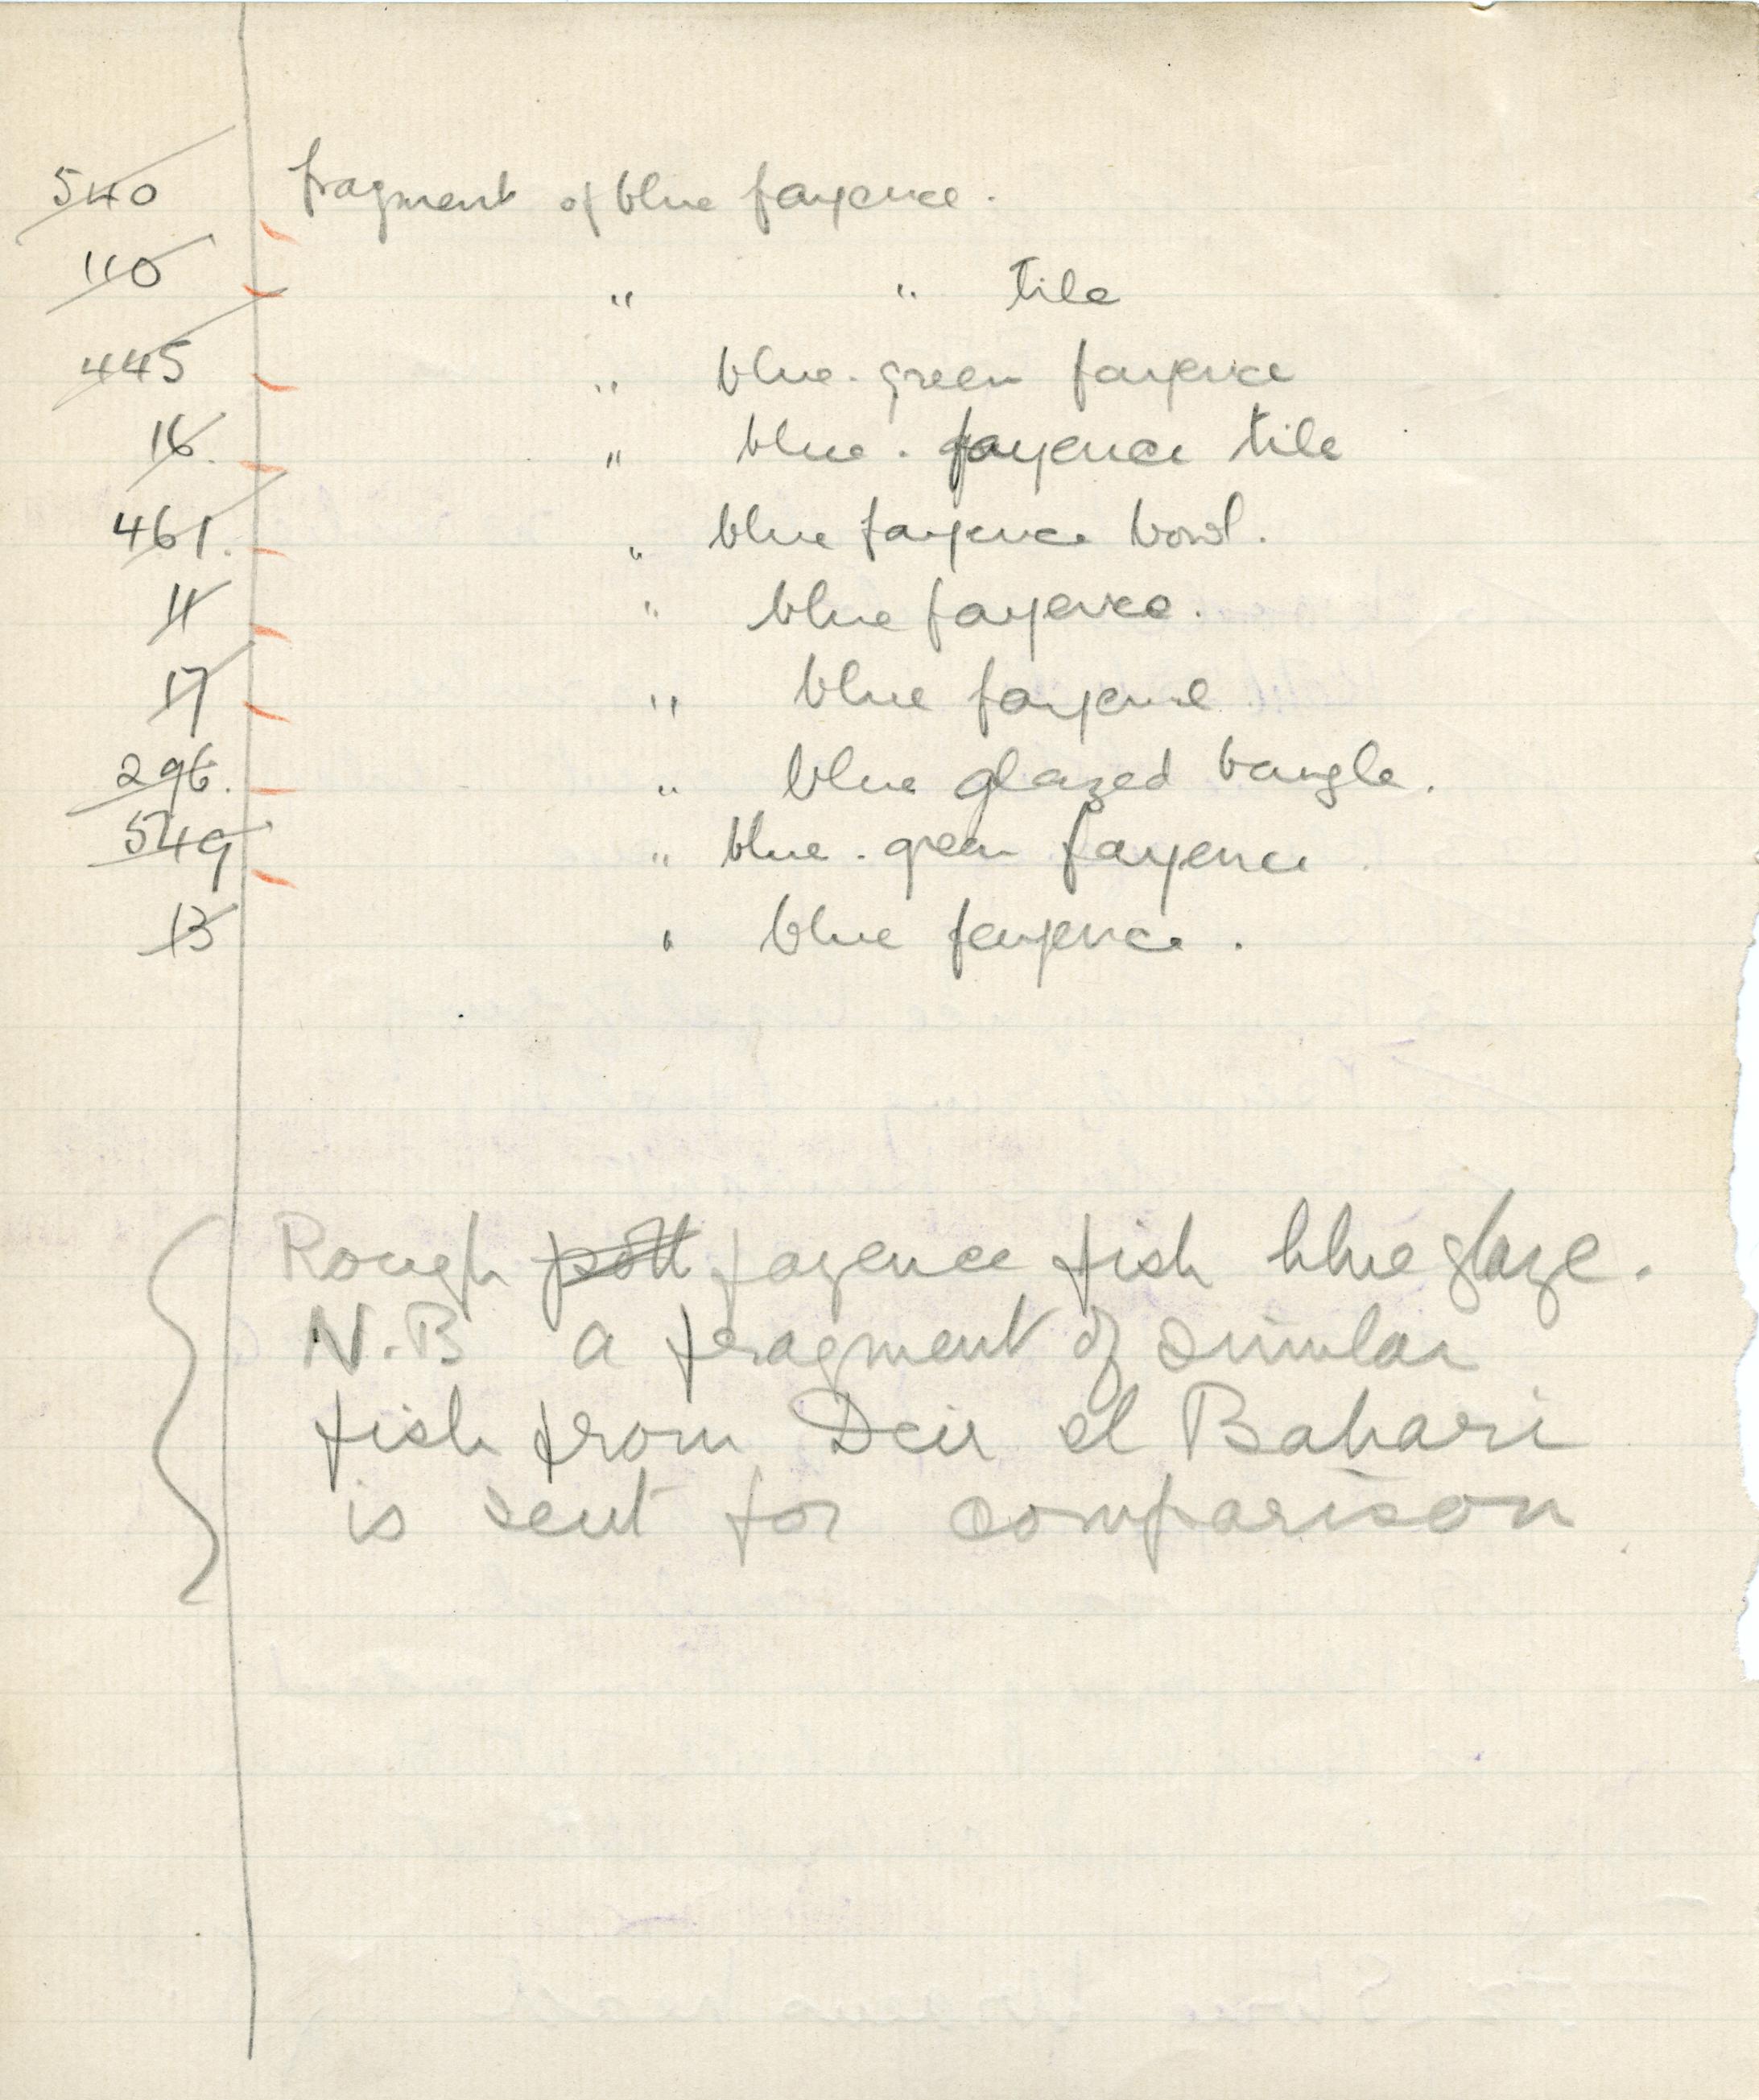 540 fragment of blue fayence.
110 " " tile
445 " blue-green fayence
16. " blue-fayence tile
461. " blue fayence bowl.
11 " blue fayence.
17 " blue fayence
296. " blue glazed bangle.
549 " blue-green fayence
13 " blue fayence.
Rough pott fayence fish blue glaze.
N.B a fragment of similar
fish from Deir el Bahari
is sent for comparison